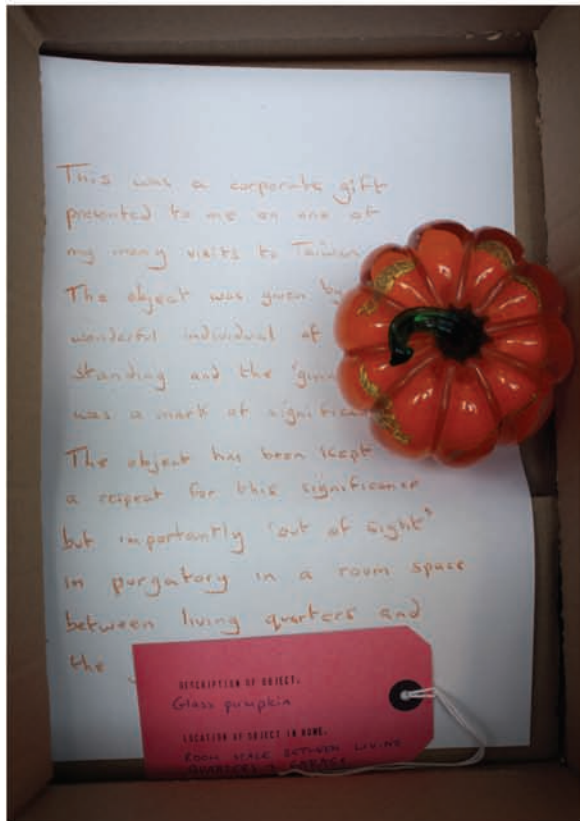 This was a corporate gift
presented to me on one of
my many visits to Taiwan
The object was given by
wonderful individual of
standing and the 'givin
was a mark of significan
The object has been kept
a respect for this significance
but importantly 'out of sight'
in purgatory in a room space
between living quarters and
the
DESCRIPTION OF OBJECT:
Glass pumpkin
LOCATION OF OBJECT IN HOME:
ROOM SCALE BETWEEN LIVING
QUARTERS & GARAGE